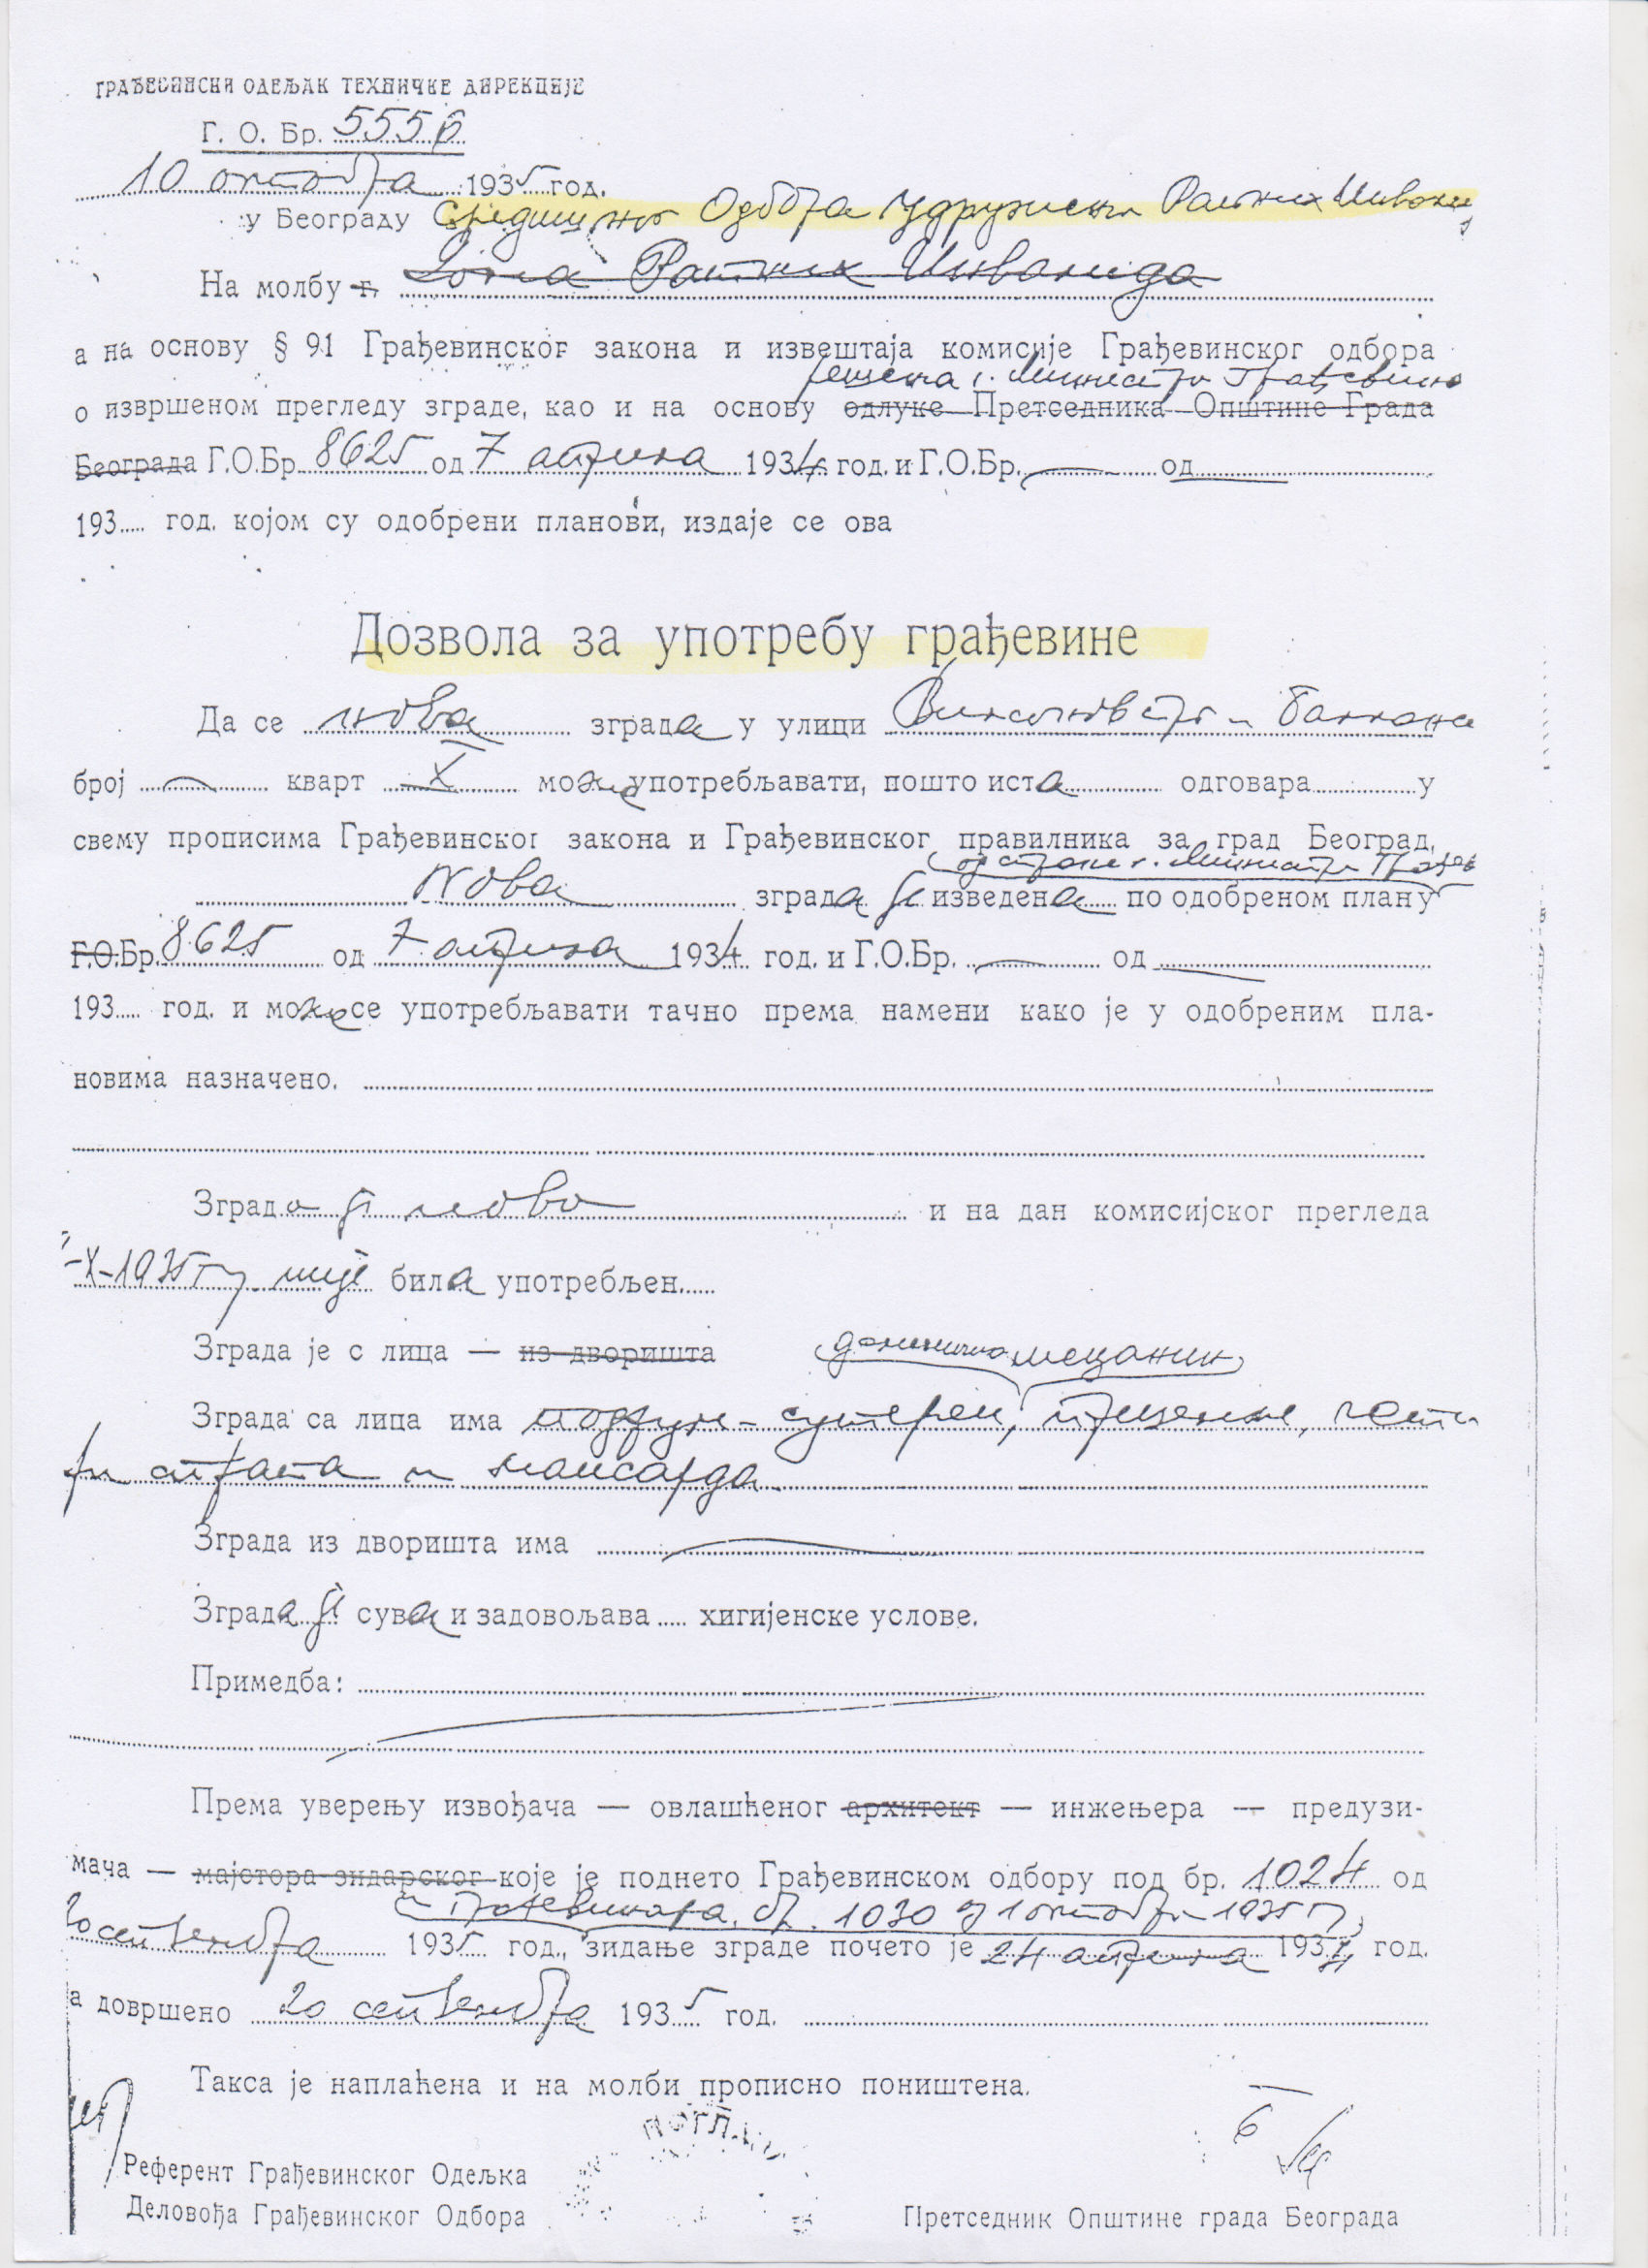 ГРАЂЕВИНСКИ ОДЕЉАК ТЕХНИЧКЕ ДИРЕКЦИЈЕ
Г. О. Бр. 5556
10 октобра 1935 год.
у Београду Средишњег Одбора Удружења Ратних Инвалида
На молбу г. Дома Ратних Инвалида
а на основу § 91 Грађевинског закона и извештаја комисије Грађевинског одбора
решења г. Министра Грађевина
о извршеном прегледу зграде, као и на основу одлуке Претседника Општине Града
Београда Г.О.Бр. 8625 од 7 априла 1934 год. и Г.О.Бр. — од
193 год. којом су одобрени планови, издаје се ова
Дозвола за употребу грађевине
Да се нова зграда у улици
број — кварт X може употребљавати, пошто иста одговара у
свему прописима Грађевинског закона и Грађевинског правилника за град Београд.
од стране г. Министра Грађев
Нова зграда је изведена по одобреном плану
Г.О.Бр. 8625 од 7 априла 1934 год. и Г.О.Бр. — од
193 год. и може се употребљавати тачно према намени како је у одобреним пла-
новима назначено.
Зграда је нова и на дан комисијског прегледа
-X-1935 г није била употребљен
Зграда је с лица — из дворишта
делимично мецанин
Зграда са лица има подрум - сутерен, приземље, чети
ри спрата и мансарда
Зграда из дворишта има —
Зграда је сува и задовољава хигијенске услове.
Примедба:
Према уверењу извођача — овлашћеног архитект — инжењера — предузи-
мача — мајстора зидарског које је поднето Грађевинском одбору под бр. 1024 од
бр. 1030 од 1 октобра 1935 г,
20 септембра 1935 год., зидање зграде почето је 24 априла 1934 год.
а довршено 20 септембра 1935 год.
Такса је наплаћена и на молби прописно поништена.
Референт Грађевинског Одељка
Деловођа Грађевинског Одбора
Претседник Општине града Београда